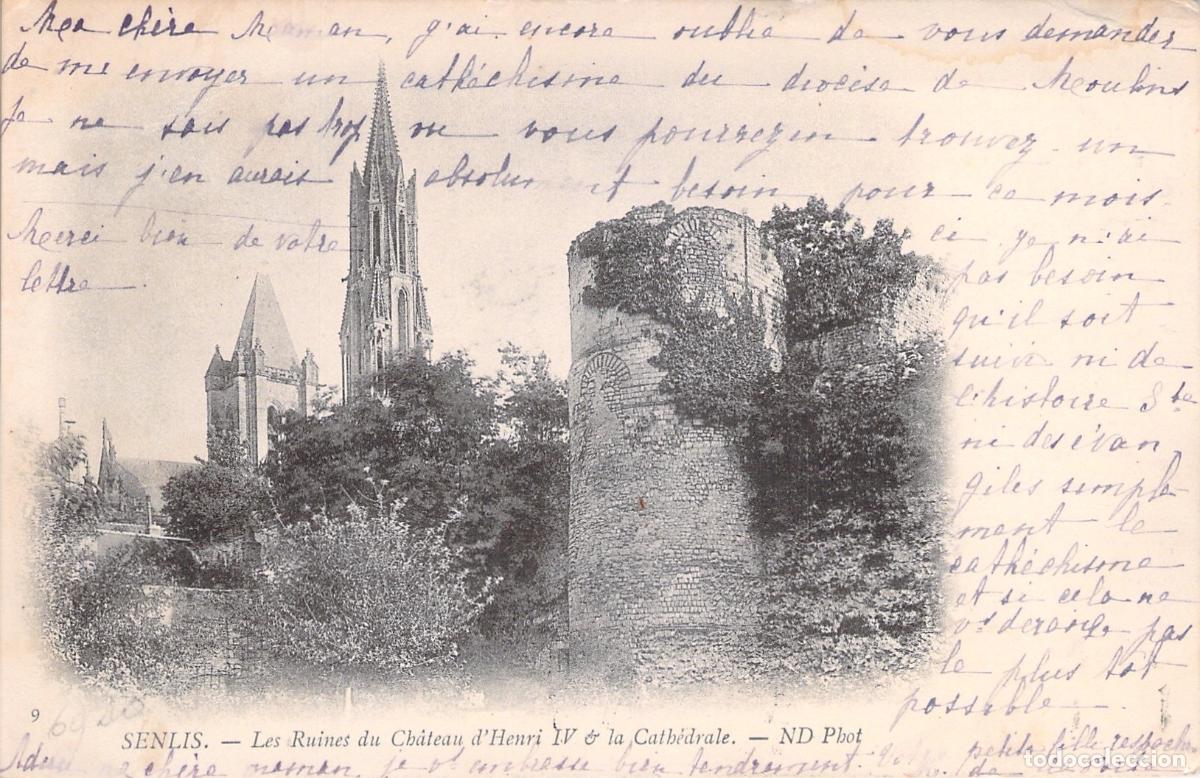 Ma chère Maman, j'ai encore oublié de vous demander
de m'envoyer un cathéchisme du diocèse de Moulins
Je ne sais pas trop ou vous pourrez en trouvez un
mais j'en aurais absolument besoin pour ce mois
ci je n'ai
Merci bien de votre
lettre.
pas besoin
qu'il soit
suivi ni de
l'histoire Ste
ni des évan
giles simple
ment le
cathéchisme
et si cela ne
vs dérange pas
le plus tôt
possible.
9
6920
SENLIS. — Les Ruines du Château d'Henri IV & la Cathédrale. — ND Phot
Adieu ma chère maman, je embrasse bien tendrement. Votre petite fille respectu
M. de
todocoleccion